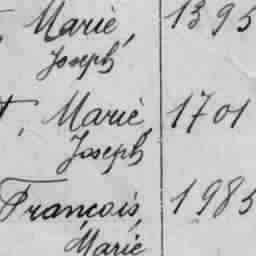 Marie, 1395
Joseph
t, Marie, 1701
Joseph
François, 1985
Marie